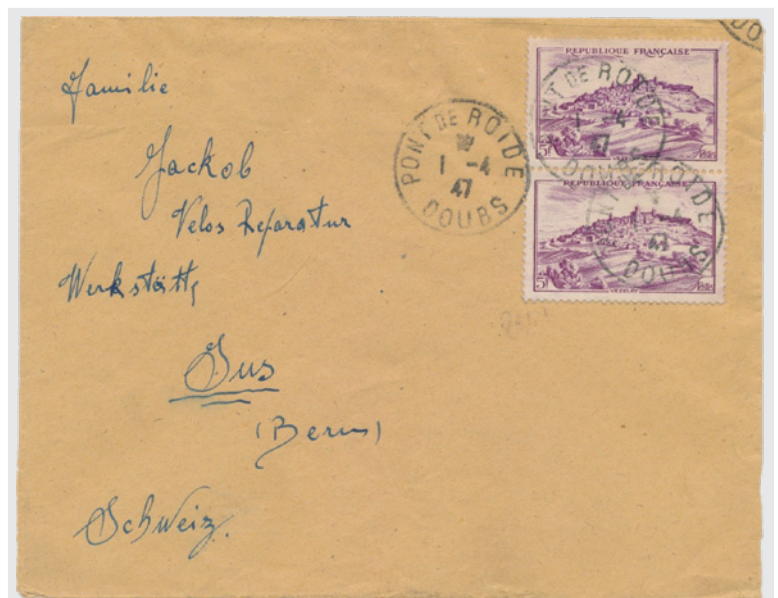 Familie
Jackob
Velos Reparatur
Werkstätte
Jns
(Bern)
Schweiz.
PONT DE ROIDE
1 -4
47
DOUBS
REPUBLIQUE FRANÇAISE
PONT DE ROIDE
1 -4
47
DOUBS
5F
REPUBLIQUE FRANÇAISE
ROIDE
47
DOUBS
5F
VEZELAY